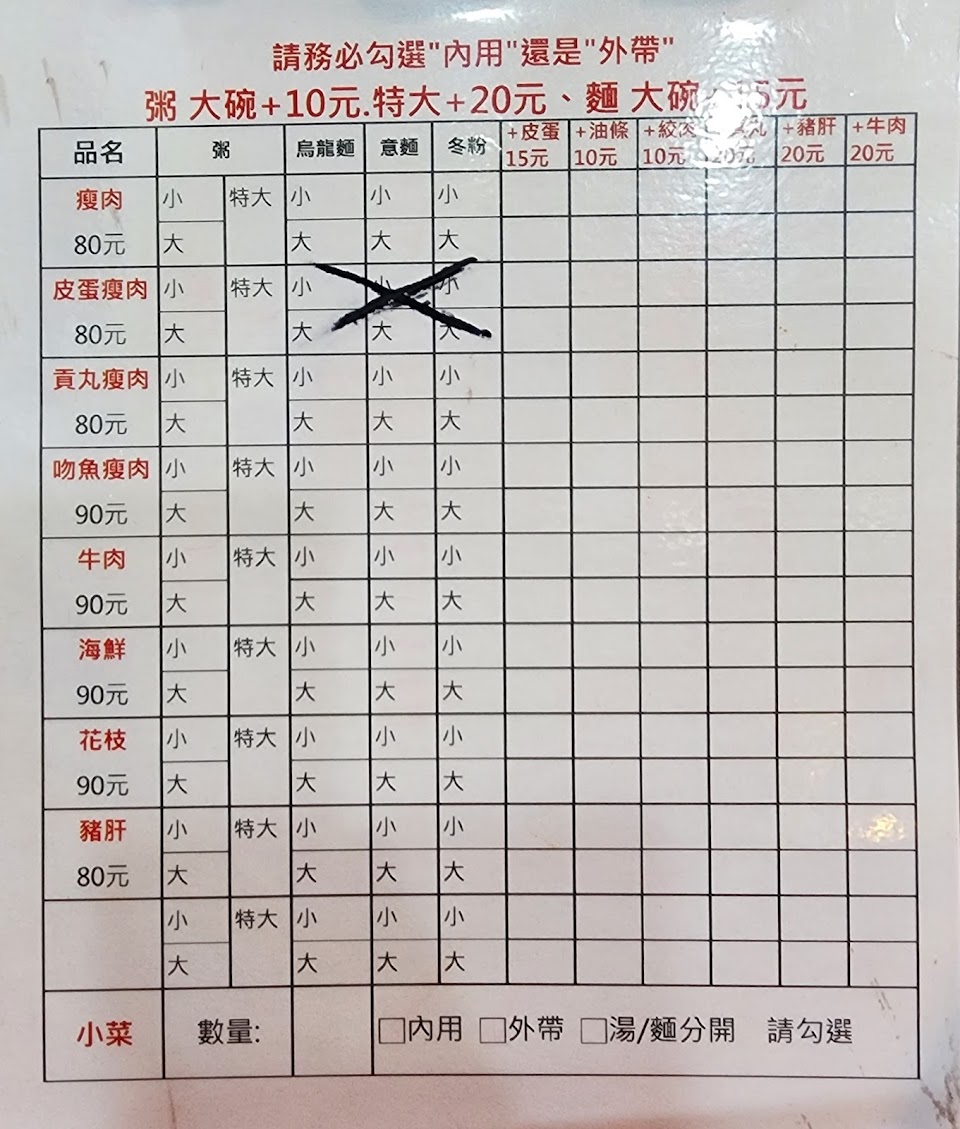 請務必勾選"內用"還是"外帶"
粥 大碗+10元.特大+20元、麵 大碗 5元
品名 粥 烏龍麵 意麵 冬粉 +皮蛋15元 +油條10元 +絞肉10元 20元 +豬肝20元 +牛肉20元
瘦肉 小 特大 小 小 小
80元 大 大 大 大
皮蛋瘦肉 小 特大 小 小 小
80元 大 大 大 大
貢丸瘦肉 小 特大 小 小 小
80元 大 大 大 大
吻魚瘦肉 小 特大 小 小 小
90元 大 大 大 大
牛肉 小 特大 小 小 小
90元 大 大 大 大
海鮮 小 特大 小 小 小
90元 大 大 大 大
花枝 小 特大 小 小 小
90元 大 大 大 大
豬肝 小 特大 小 小 小
80元 大 大 大 大
小 特大 小 小 小
大 大 大 大
小菜 數量: □內用 □外帶 □湯/麵分開 請勾選